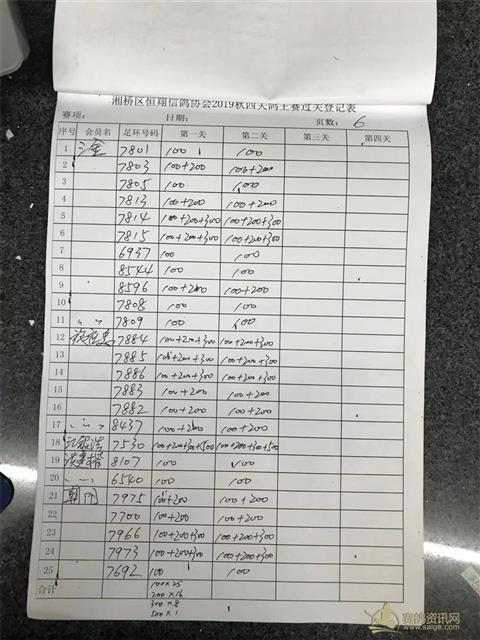 湘桥区恒翔信鸽协会2019秋四关鸽王赛过关登记表
赛项： 日期： 页数：6
序号 会员名 足环号码 第一关 第二关 第三关 第四关
1 7801 100 100
2 7803 100+200 100+200
3 7805 100 100
4 7813 100+200 100+200
5 7814 100+200+300 100+200+300
6 7815 100+200+300 100+200+300
7 6937 100 100
8 8544 100 100
9 8596 100+200 100+200
10 7808 100 100
11 〃 7809 100 100
12 7884 100+200+300 100+200+300
13 7885 100+200+300 100+200+300
14 7886 100+200+300 100+200+300
15 7883 100+200 100+200
16 7882 100+200 100+200
17 8437 100+200 100+200
18 7530 100+200+300+500 100+200+300+500
19 8107 100 100
20 6540 100 100
21 7975 100+200 100+200
22 7700 100+200 100+200
23 7966 100+200+300 100+200+300
24 7973 100+200+300 100+200+300
25 7692 100 100
合计 100×25
200×16
300×8
500×1
赛鸽资讯网
www.saige.com